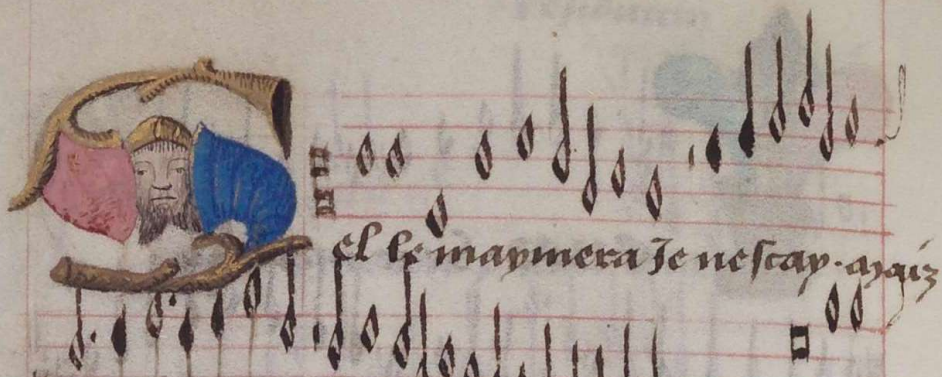 Sel le maymera Je ne scay. maiz